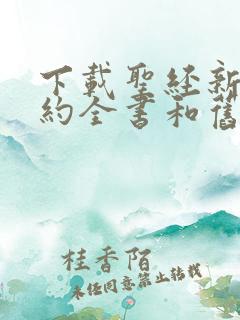 下載聖経新
約全書和舊
桂香陌
未经同意禁止转载